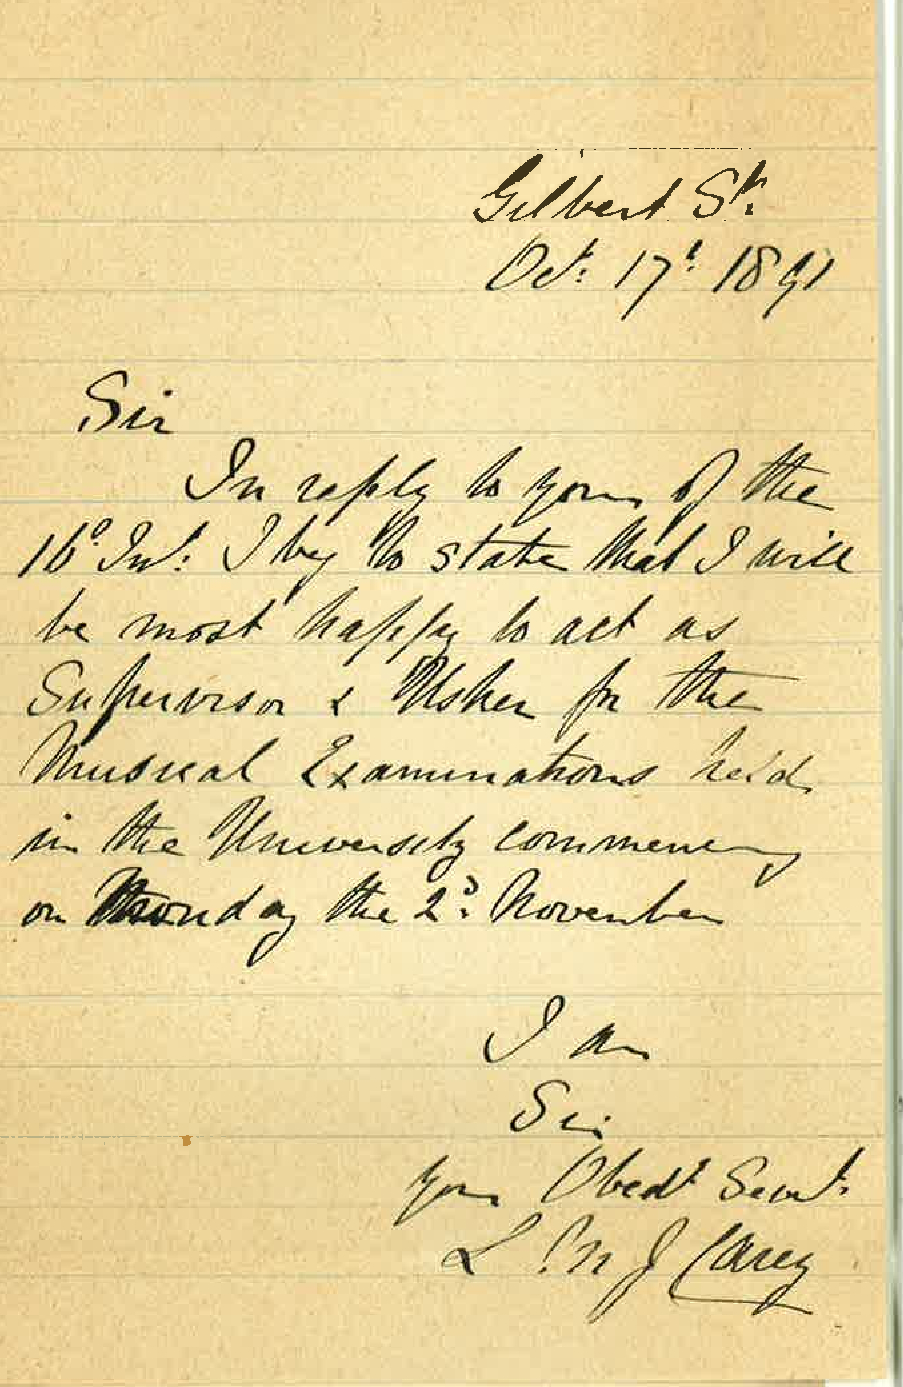 Gilbert St.
Oct. 17t. 1891
Sir
In reply to yours of the
16o. Inst. I beg to state that I will
be most happy to act as
Supervisor & Usher for the
Musical Examinations held
in the University commencing
on Monday the 2d. November
I am
Sir
your Obedt. Servt.
J Carey